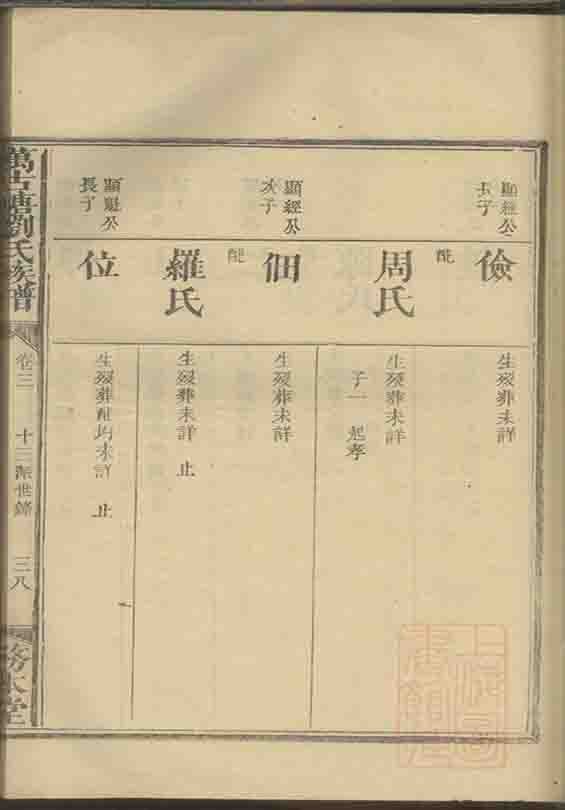 顯經公
長子
儉
生殁葬未詳
配
周氏
生殁葬未詳
子一 起孝
顯經公
次子
佃
生殁葬未詳
配
羅氏
生殁葬未詳 止
顯魁公
長子
位
生殁葬配均未詳 止
萬古塘劉氏族譜
卷三
十三派世錄
三八
務本堂
上海圖
書館藏